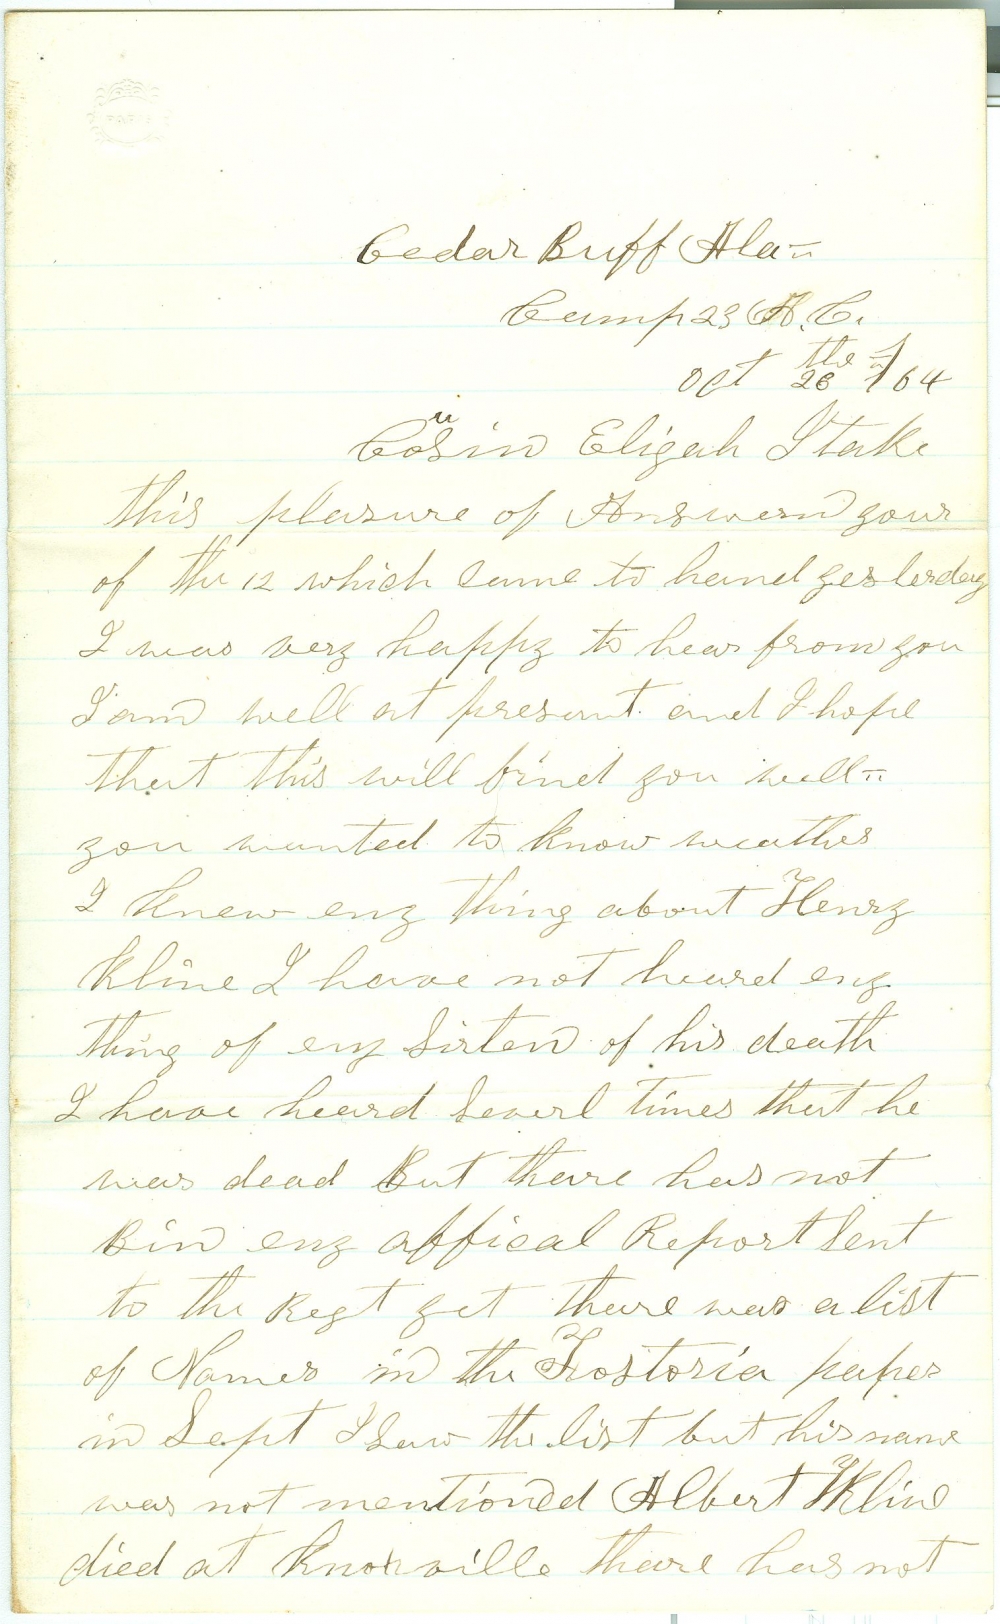 PARIS
Cedar Buff Ala=
Camp 23 A. C.
Oct 26 the /64
Cousin Eligah I take
this plasure of Answern your
of the 12 which came to hand yesterday
I was very happy to hear from you
I am well at present. and I hope
that this will find you well=
you wanted to know weather
I knew eny thing about Henry
Kline I have not heard eny
thing of eny Sirten of his death
I have heard Severl times that he
was dead But thare has not
Bin eny affical Report Sent
to the Regt yet thare was a list
of Names in the Fostoria paper
in Sept I Saw the list but his name
was not mentioned Albert Kline
died at Knoxville thare has not